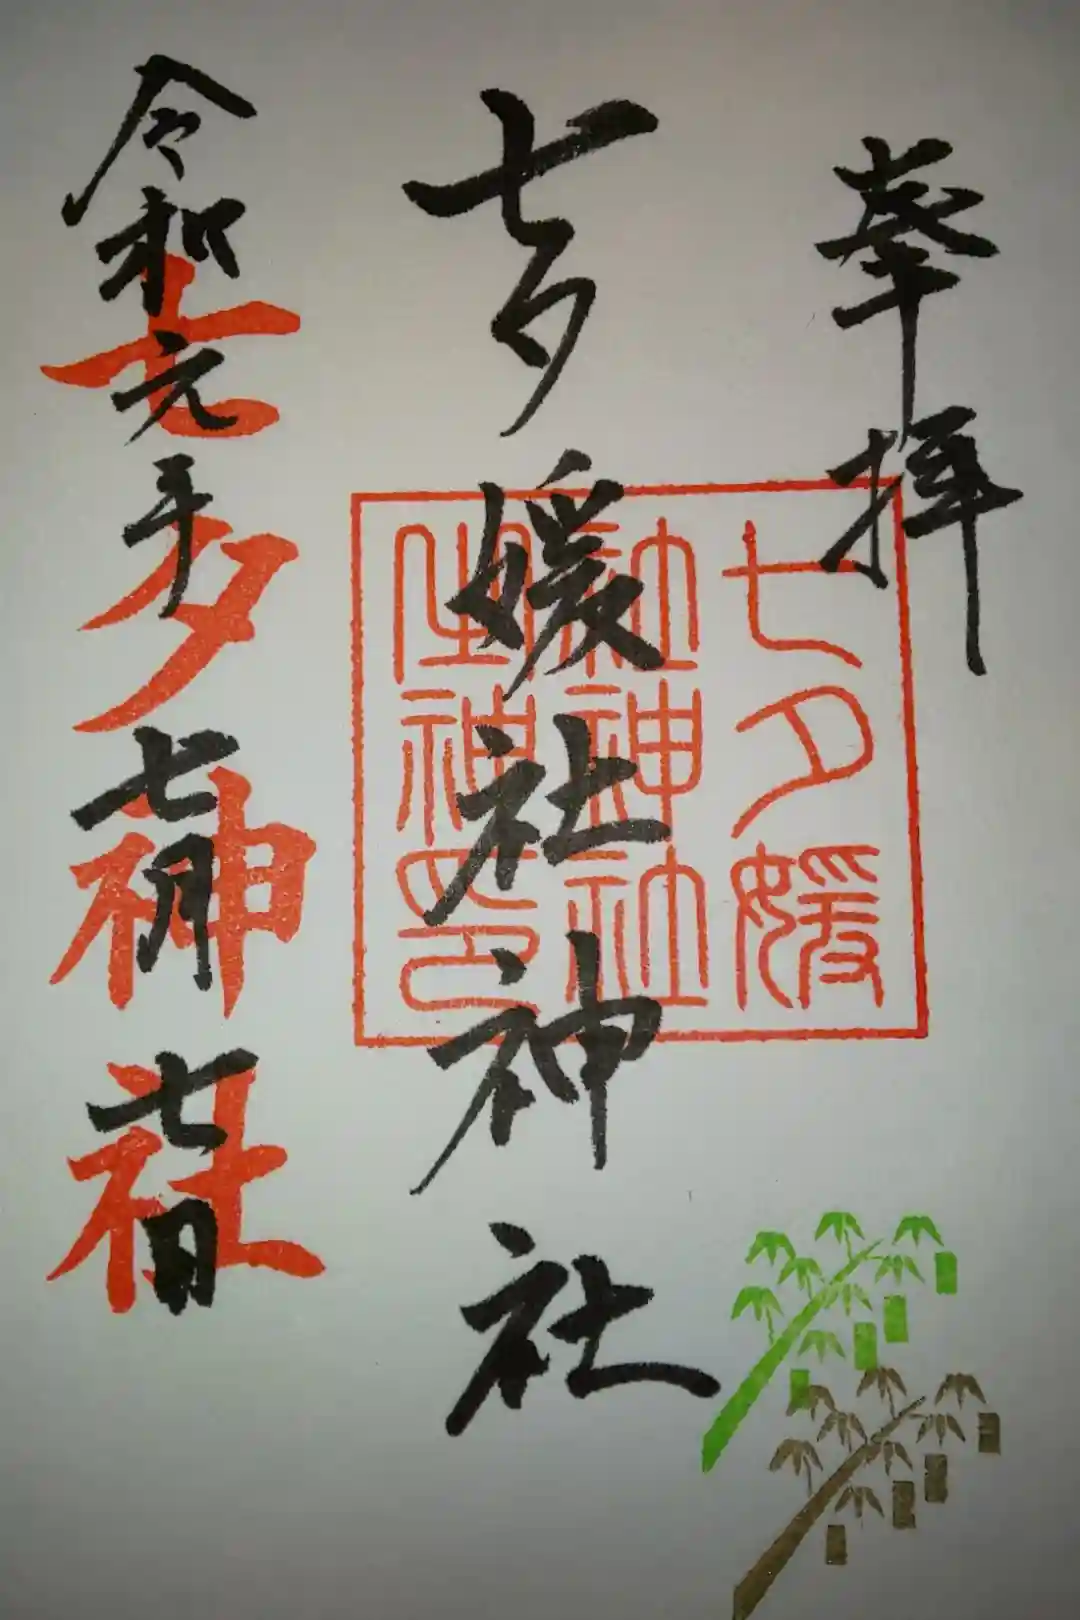 奉拝
七夕媛社神社
七夕媛
社神社
神印
令和元年七月七日
七夕神社